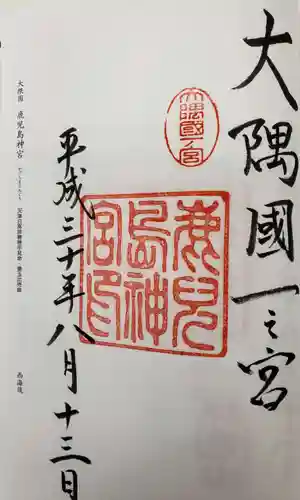 大隅國一之宮
大隅國一宮
鹿兒
島神
宮印
平成三十年八月十三日
大隅國 鹿児島神宮
西海道